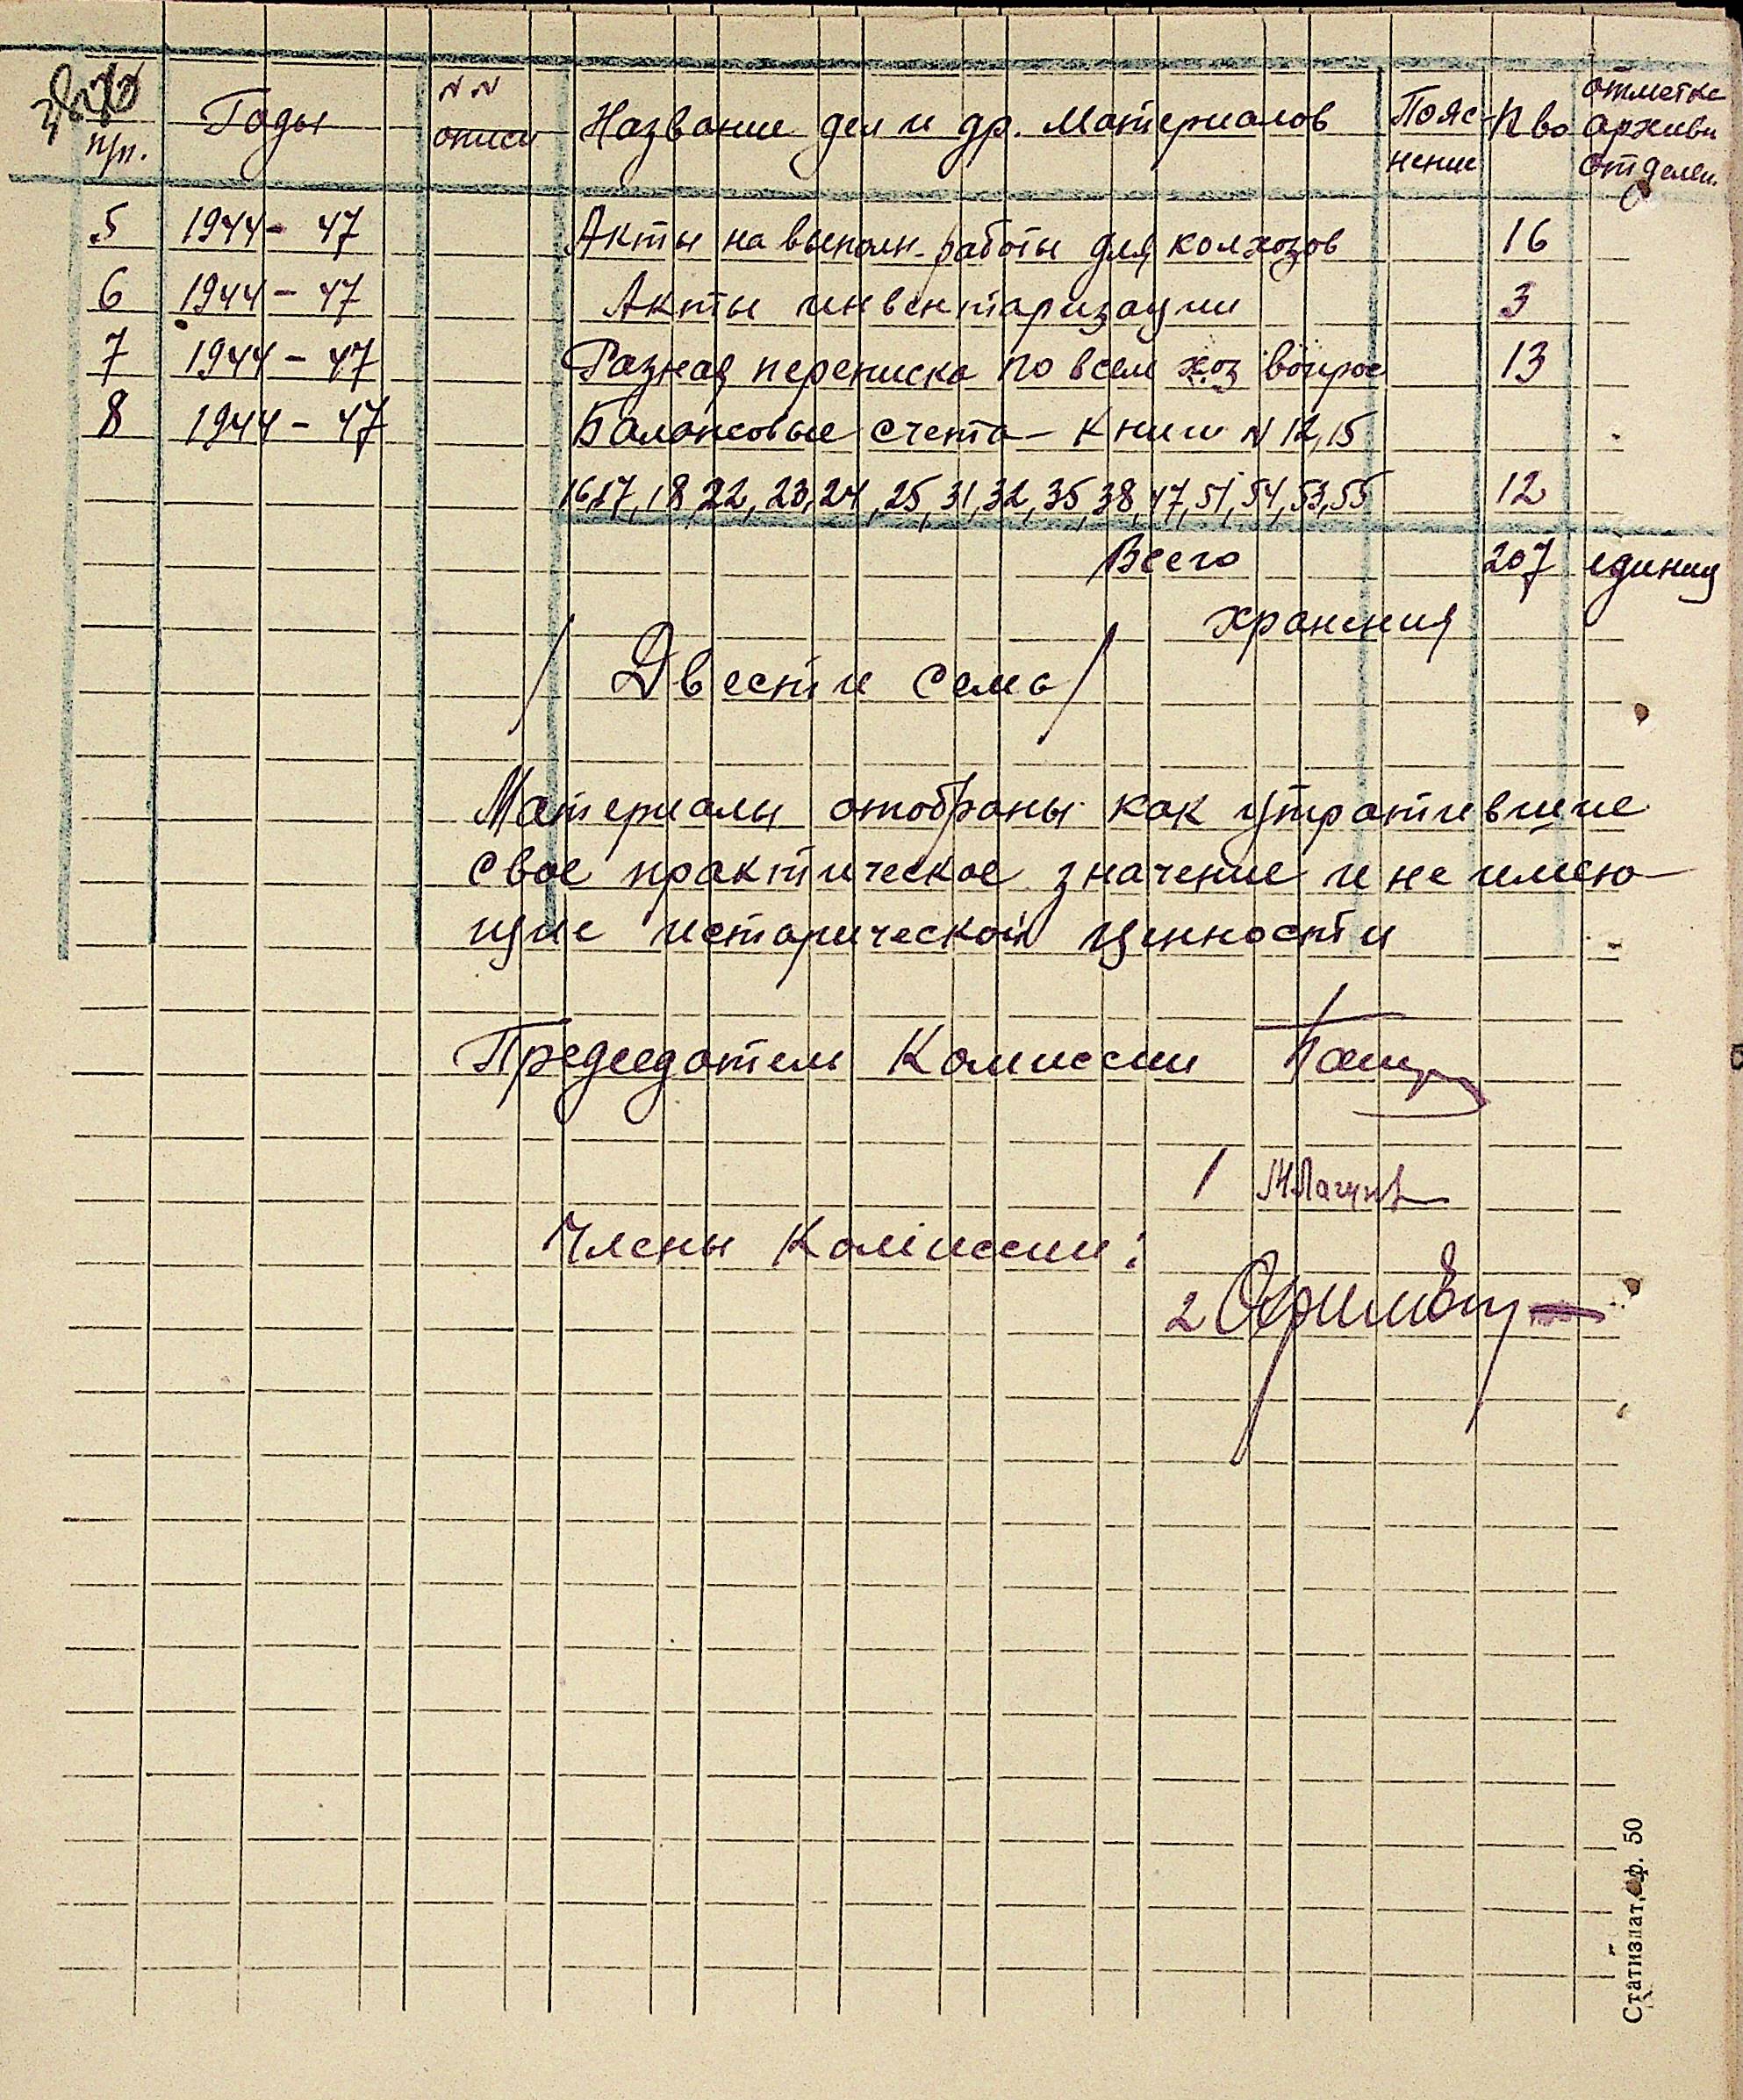 п/п. Годы №№ описи Название дел и др. материалов Пояс-нение К-во отметка архивн отделен.
5 1944 - 47 Акты на выполн. работы для колхозов 16
6 1944 - 47 Акты инвентаризации 3
7 1944 - 47 Разная переписка по всем хоз вопрос 13
8 1944 - 47 Балансовые счета - книги N 12, 15
16,17, 18, 22, 23, 24, 25, 31, 32, 35, 38, 47, 51, 54, 53, 55 12
Всего 207 единиц
хранения
/ Двести семь /
Материалы отобраны как утратившие
свое практическое значение и не имею-
щие исторической ценности
Председатель Комиссии
1
Члены Комиссии:
2
Статиздат, ф. 50